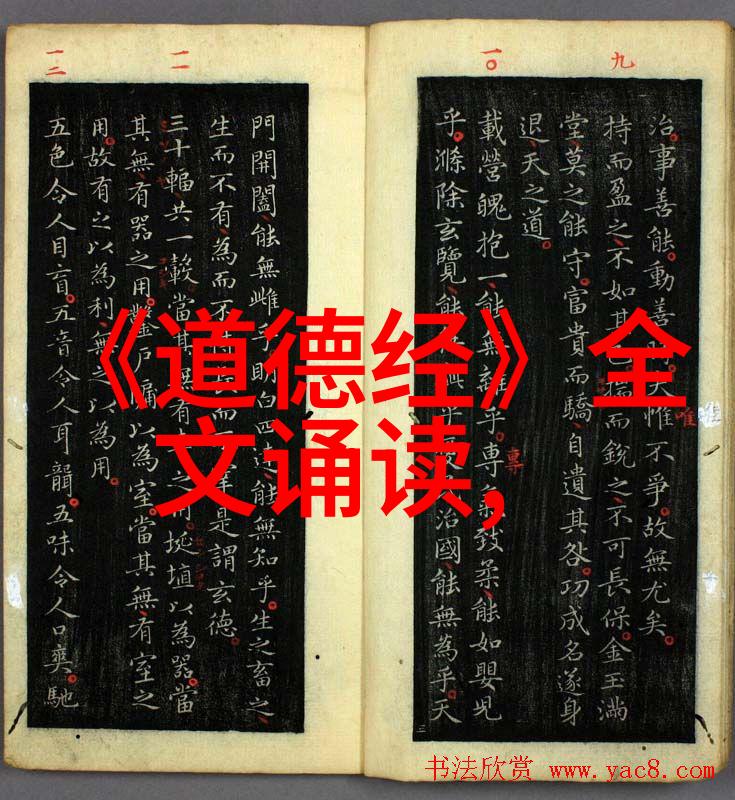 九
治。事善能。動善夫惟不爭。故無尤矣。
唯
持而盈之、不如其揣而銳之、不可長保。金玉滿
堂、莫之能守。富貴而驕、自遺其咎。功成名遂身
退、天之道。
一〇
載營魄抱一、能無離乎。專致柔、能如嬰兒
專
乎。滌除玄覽、能乎治國、能無為乎。天
門開闔、能無雌乎明白四達、能無知乎。生之畜之、
生而不有、為而不而是謂玄德。
一一
三十輻、共一轂、當其無有之用挻埴以為器、當
其無、有器之用。鑿戶牖以為室。當其無、有室之
用。故有之以為利、無之以為用。
一二
五色令人目盲。五音令人耳聾。五味令人口爽。馳
《道德经》全
文诵读,
书法欣赏 www.yac8.com